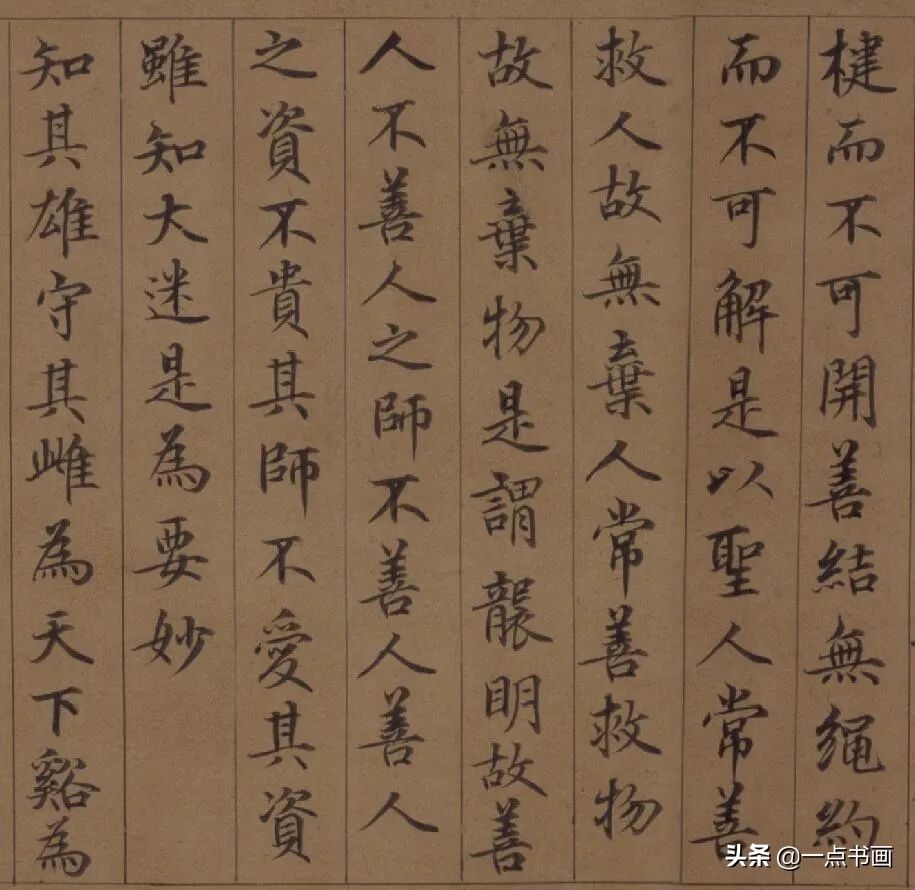 楗而不可開善結無繩約
而不可解是以聖人常善
救人故無棄人常善救物
故無棄物是謂襲明故善
人不善人之師不善人善人
之資不貴其師不愛其資
雖知大迷是為要妙
知其雄守其雌為天下谿為
头条 @一点书画